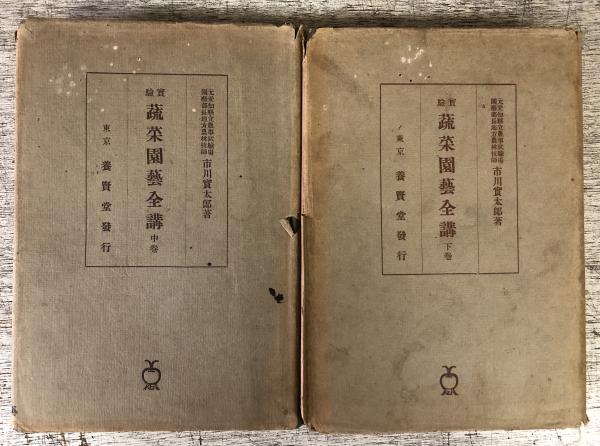 元愛知縣立農事試驗場
園藝部長地方農林技師
市川實太郎著
實驗
蔬菜園藝全講 中卷
東京 養賢堂發行
元愛知縣立農事試驗場
園藝部長地方農林技師
市川實太郎著
實驗
蔬菜園藝全講 下卷
東京 養賢堂發行